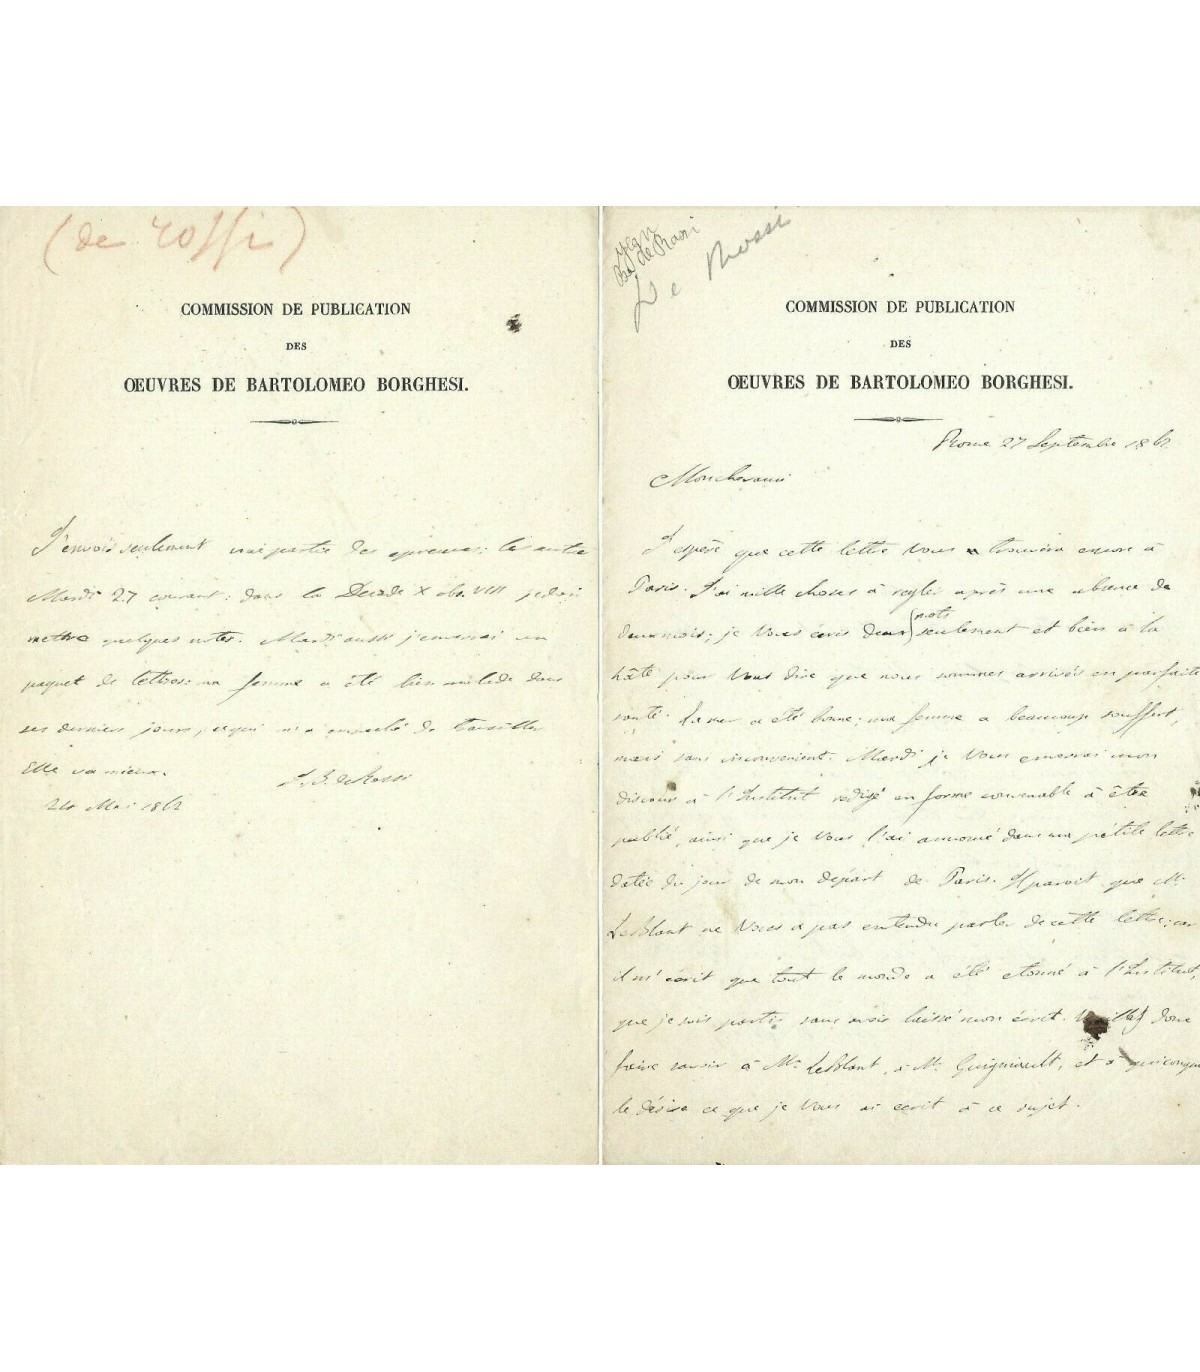 (de rossi)
COMMISSION DE PUBLICATION
DES
ŒUVRES DE BARTOLOMEO BORGHESI.
J'envois seulement une partie des epreuves: les autres
Mardi 27 courant: dans la Decade X obs. VIII je dois
mettre quelques notes. Mardi aussi j'enverrai un
paquet de lettres: ma femme a été bien malade dans
ces derniers jours, ce qui m'a empeché de travailler
Elle va mieux. J. B. de Rossi
24 Mai 1862
De Rossi
COMMISSION DE PUBLICATION
DES
ŒUVRES DE BARTOLOMEO BORGHESI.
Rome 27 Septembre 1862
Mon cher ami
J'espère que cette lettre Vous trouvera encore à
Paris. J'ai mille choses à regler après une absence de
deux mois; je Vous écris deux mots seulement et bien à la
hâte pour Vous dire que nous sommes arrivés en parfaite
santé. La mer a été bonne; ma femme a beaucoup souffert,
mais sans inconvenient. Mardi je Vous enverrai mon
discours à l'Institut redigé en forme convenable à être
publié, ainsi que je Vous l'ai annoncé dans ma pétite lettre
datée du jour de mon depárt de Paris. Il paroit que Mr.
LeBlant ne Vous a pas entendu parler de cette lettre; car
il m'écrit que tout le monde a été etonné à l'Institut,
que je sois partis sans avoir laissé mon écrit. Veuillez donc
faire savoir à Mr. LeBlant, à Mr. Guigniault, et à quiconque
le désire ce que je Vous ai écrit à ce sujet.